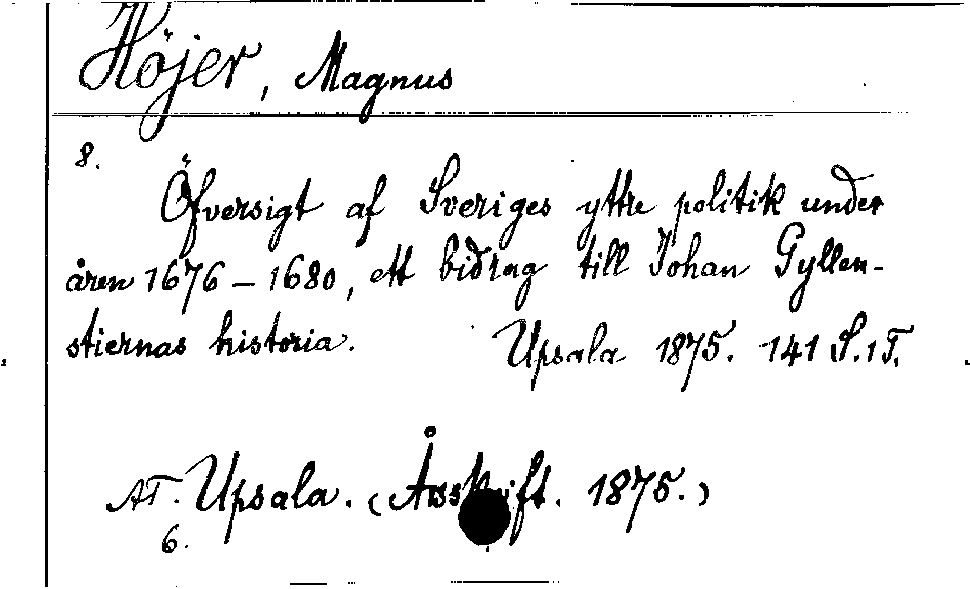 Höjer, Magnus
8.
Öfversigt af Sveriges yttre politik under
åren 1676 – 1680, ett bidrag till Johan Gyllen-
stiernas historia. Upsala 1875. 141 S. 1 T.
AT. Upsala. (Årsskrift. 1875.)
6.